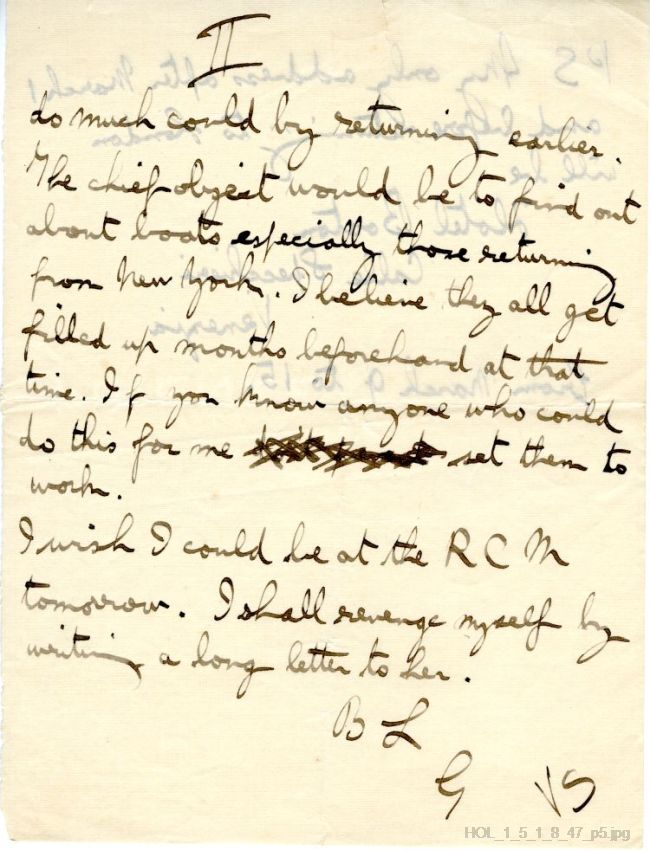 II
do much could by returning earlier.
The chief object would be to find out
about boats especially those returning
from New York. I believe they all get
filled up months beforehand at that
time. If you know anyone who could
do this for me set them to
work.
I wish I could be at the R C M
tomorrow. I shall revenge myself by
writing a long letter to her.
B L
G VS
HOL_1_5_1_8_47_p5.jpg